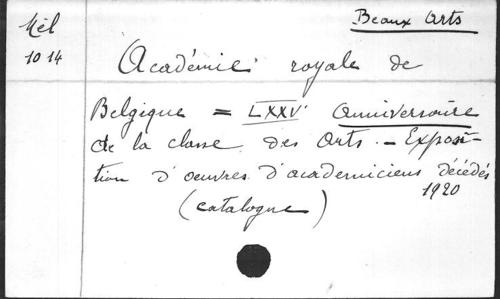 Mél
10 14
Beaux Arts
Académie royale de
Belgique = LXXV anniversaire
de la classe des Arts. - Exposi-
tion d'oeuvres d'academiciens décédés
1920
(catalogue)